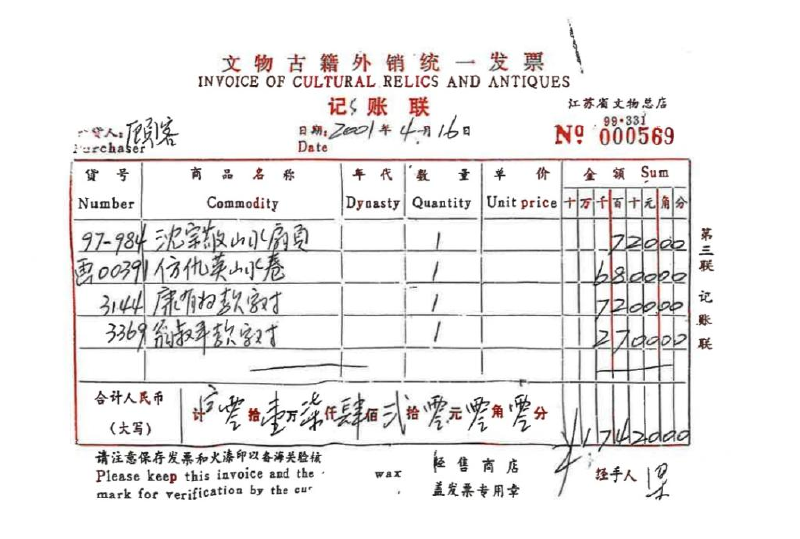 文物古籍外销统一发票
INVOICE OF CULTURAL RELICS AND ANTIQUES
记账联
江苏省文物总店
99·331
Nº 000569
货人: 顾客
Purchaser
日期: 2001年4月16日
Date
货号 商品名称 年代 数量 单价 金额 Sum
Number Commodity Dynasty Quantity Unit price 十万千百十元角分
97-984 沈宗敬山水扇页 1 72000
画00391 仿仇英山水卷 1 680000
3144 康有为款字对 1 720000
3369 翁叔平款字对 1 270000
合计人民币 计 零拾壹万柒仟肆佰贰拾零元零角零分 ¥1742000
(大写)
请注意保存发票和火漆印以备海关验核
Please keep this invoice and the wax
mark for verification by the cu
经售商店
盖发票专用章
经手人 梁
第三联 记账联